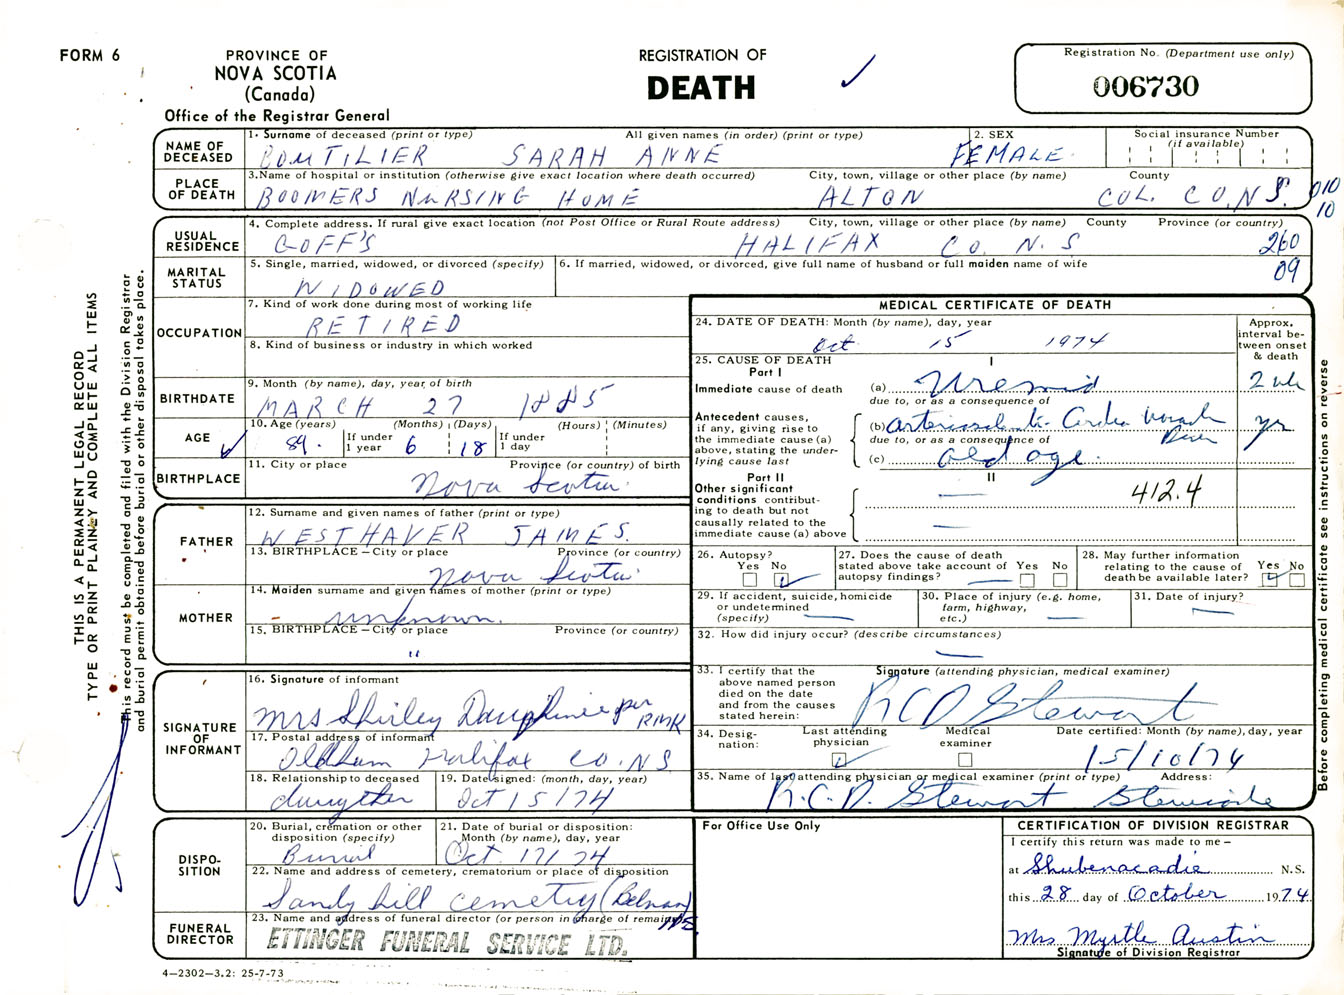 FORM 6
PROVINCE OF
NOVA SCOTIA
(Canada)
Office of the Registrar General
REGISTRATION OF
DEATH
Registration No. (Department use only)
006730
THIS IS A PERMANENT LEGAL RECORD
TYPE OR PRINT PLAINLY AND COMPLETE ALL ITEMS
This record must be completed and filed with the Division Registrar
and burial permit obtained before burial or other disposal takes place.
NAME OF DECEASED
1. Surname of deceased (print or type) All given names (in order) (print or type) 2. SEX Social insurance Number (if available)
BOUTILIER SARAH ANNE FEMALE
PLACE OF DEATH
3. Name of hospital or institution (otherwise give exact location where death occurred) City, town, village or other place (by name) County
BOOMERS NURSING HOME ALTON COL. CO. N.S. 010
10
USUAL RESIDENCE
4. Complete address. If rural give exact location (not Post Office or Rural Route address) City, town, village or other place (by name) County Province (or country)
GOFF'S HALIFAX CO. N.S 260
09
MARITAL STATUS
5. Single, married, widowed, or divorced (specify) 6. If married, widowed, or divorced, give full name of husband or full maiden name of wife
WIDOWED
OCCUPATION
7. Kind of work done during most of working life
RETIRED
8. Kind of business or industry in which worked
BIRTHDATE
9. Month (by name), day, year of birth
MARCH 27 1885
AGE
10. Age (years) (Months) (Days) (Hours) (Minutes)
89. If under 1 year 6 18 If under 1 day
BIRTHPLACE
11. City or place Province (or country) of birth
Nova Scotia
FATHER
12. Surname and given names of father (print or type)
WESTHAVER JAMES.
13. BIRTHPLACE – City or place Province (or country)
Nova Scotia
MOTHER
14. Maiden surname and given names of mother (print or type)
unknown.
15. BIRTHPLACE – City or place Province (or country)
"
SIGNATURE OF INFORMANT
16. Signature of informant
Mrs Shirley Dauphinee per RMK
17. Postal address of informant
Oldham Halifax CO. NS
18. Relationship to deceased 19. Date signed: (month, day, year)
daughter Oct 15/74
DISPOSITION
20. Burial, cremation or other disposition (specify) 21. Date of burial or disposition: Month (by name), day, year
Burial Oct. 17/74
22. Name and address of cemetery, crematorium or place of disposition
Sandy hill cemetry (Belnan) NS
FUNERAL DIRECTOR
23. Name and address of funeral director (or person in charge of remains)
ETTINGER FUNERAL SERVICE LTD.
4–2302–3.2: 25-7-73
MEDICAL CERTIFICATE OF DEATH
24. DATE OF DEATH: Month (by name), day, year
Oct 15 1974
Approx. interval between onset & death
25. CAUSE OF DEATH I
Part I
Immediate cause of death (a) Uremia 2 wk
due to, or as a consequence of
Antecedent causes, if any, giving rise to the immediate cause (a) above, stating the underlying cause last
(b) Cardio yrs
due to, or as a consequence of
(c) old age.
Part II II
Other significant conditions contributing to death but not causally related to the immediate cause (a) above
412.4
26. Autopsy? Yes No
27. Does the cause of death stated above take account of autopsy findings? Yes No
28. May further information relating to the cause of death be available later? Yes No
29. If accident, suicide, homicide or undetermined (specify)
30. Place of injury (e.g. home, farm, highway, etc.)
31. Date of injury?
32. How did injury occur? (describe circumstances)
33. I certify that the above named person died on the date and from the causes stated herein:
Signature (attending physician, medical examiner)
RCD Stewart
34. Designation: Last attending physician Medical examiner Date certified: Month (by name), day, year
15/10/74
35. Name of last attending physician or medical examiner (print or type) Address:
R.C.D. Stewart Stewiacke
For Office Use Only
CERTIFICATION OF DIVISION REGISTRAR
I certify this return was made to me –
at Shubenacadie N.S.
this 28 day of October 1974
Mrs Myrtle Austin
Signature of Division Registrar
Before completing medical certificate see instructions on reverse